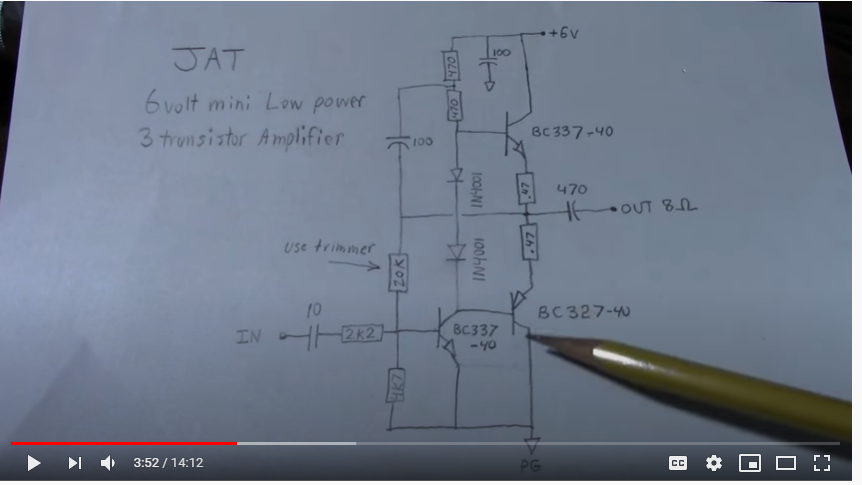 JAT
6 volt mini Low power
3 transistor Amplifier
+6V
470
100
470
BC337-40
100
1N4001
.47
470
OUT 8Ω
.47
use trimmer
20K
1N4001
10
BC327-40
IN
2K2
BC337
-40
4K7
PG
3:52 / 14:12
CC